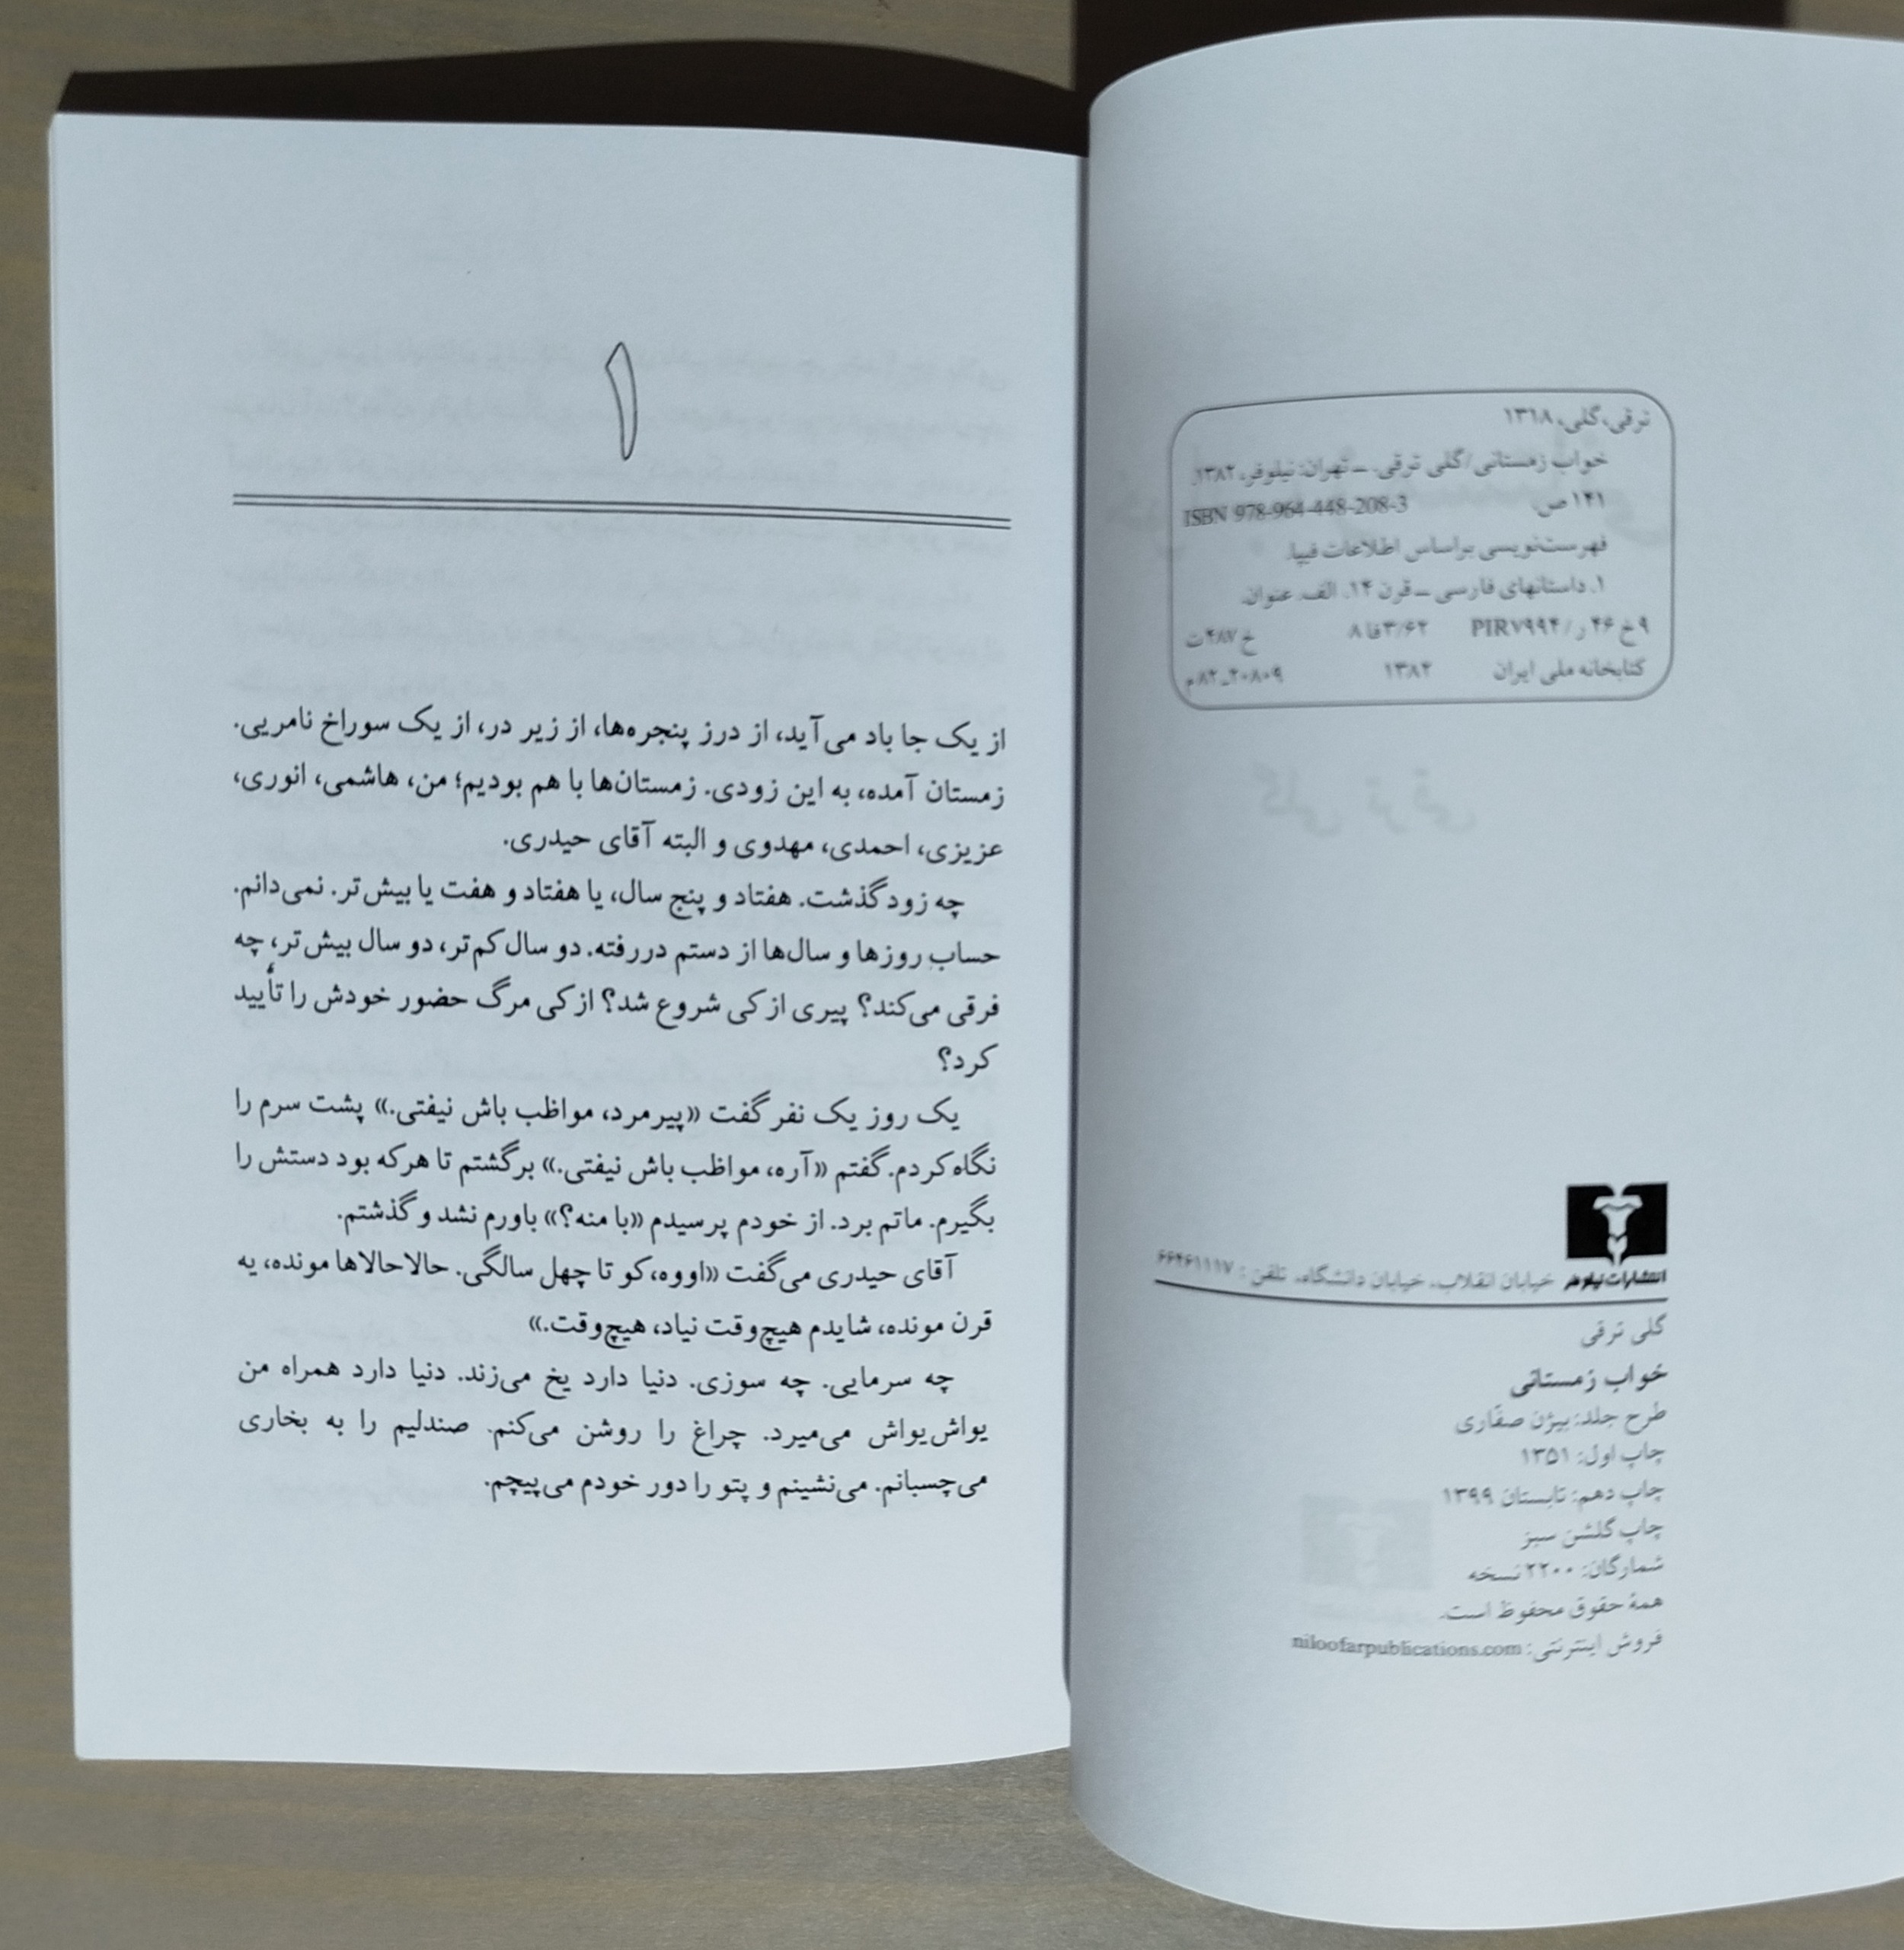 ترقی، گلی، ۱۳۱۸
خواب زمستانی/گلی ترقی. ـ تهران: نیلوفر، ۱۳۸۲.
۱۴۱ ص. ISBN 978-964-448-208-3
فهرست‌نویسی براساس اطلاعات فیپا.
۱. داستانهای فارسی ـ قرن ۱۴. الف. عنوان.
۹خ ۴۶ ر/ PIR۷۹۹۴ ۸فا۳/۶۲ خ ۴۸۷ت
کتابخانه ملی ایران ۱۳۸۲ ۲۰۸۰۹ـ۸۲م
انتشارات نیلوفر خیابان انقلاب، خیابان دانشگاه، تلفن: ۶۶۴۶۱۱۱۷
گلی ترقی
خواب زمستانی
طرح جلد: بیژن صفّاری
چاپ اول: ۱۳۵۱
چاپ دهم: تابستان ۱۳۹۹
چاپ گلشن سبز
شمارگان: ۲۲۰۰ نسخه
همهٔ حقوق محفوظ است.
فروش اینترنتی: niloofarpublications.com
۱
از یک جا باد می‌آید، از درز پنجره‌ها، از زیر در، از یک سوراخ نامریی.
زمستان آمده، به این زودی. زمستان‌ها با هم بودیم؛ من، هاشمی، انوری،
عزیزی، احمدی، مهدوی و البته آقای حیدری.
چه زود گذشت. هفتاد و پنج سال، یا هفتاد و هفت یا بیش‌تر. نمی‌دانم.
حساب روزها و سال‌ها از دستم دررفته. دو سال کم‌تر، دو سال بیش‌تر، چه
فرقی می‌کند؟ پیری از کی شروع شد؟ از کی مرگ حضور خودش را تأیید
کرد؟
یک روز یک نفر گفت «پیرمرد، مواظب باش نیفتی.» پشت سرم را
نگاه کردم. گفتم «آره، مواظب باش نیفتی.» برگشتم تا هرکه بود دستش را
بگیرم. ماتم برد. از خودم پرسیدم «با منه؟» باورم نشد و گذشتم.
آقای حیدری می‌گفت «اووه، کو تا چهل سالگی. حالاحالاها مونده، یه
قرن مونده، شایدم هیچ‌وقت نیاد، هیچ‌وقت.»
چه سرمایی. چه سوزی. دنیا دارد یخ می‌زند. دنیا دارد همراه من
یواش‌یواش می‌میرد. چراغ را روشن می‌کنم. صندلیم را به بخاری
می‌چسبانم. می‌نشینم و پتو را دور خودم می‌پیچم.